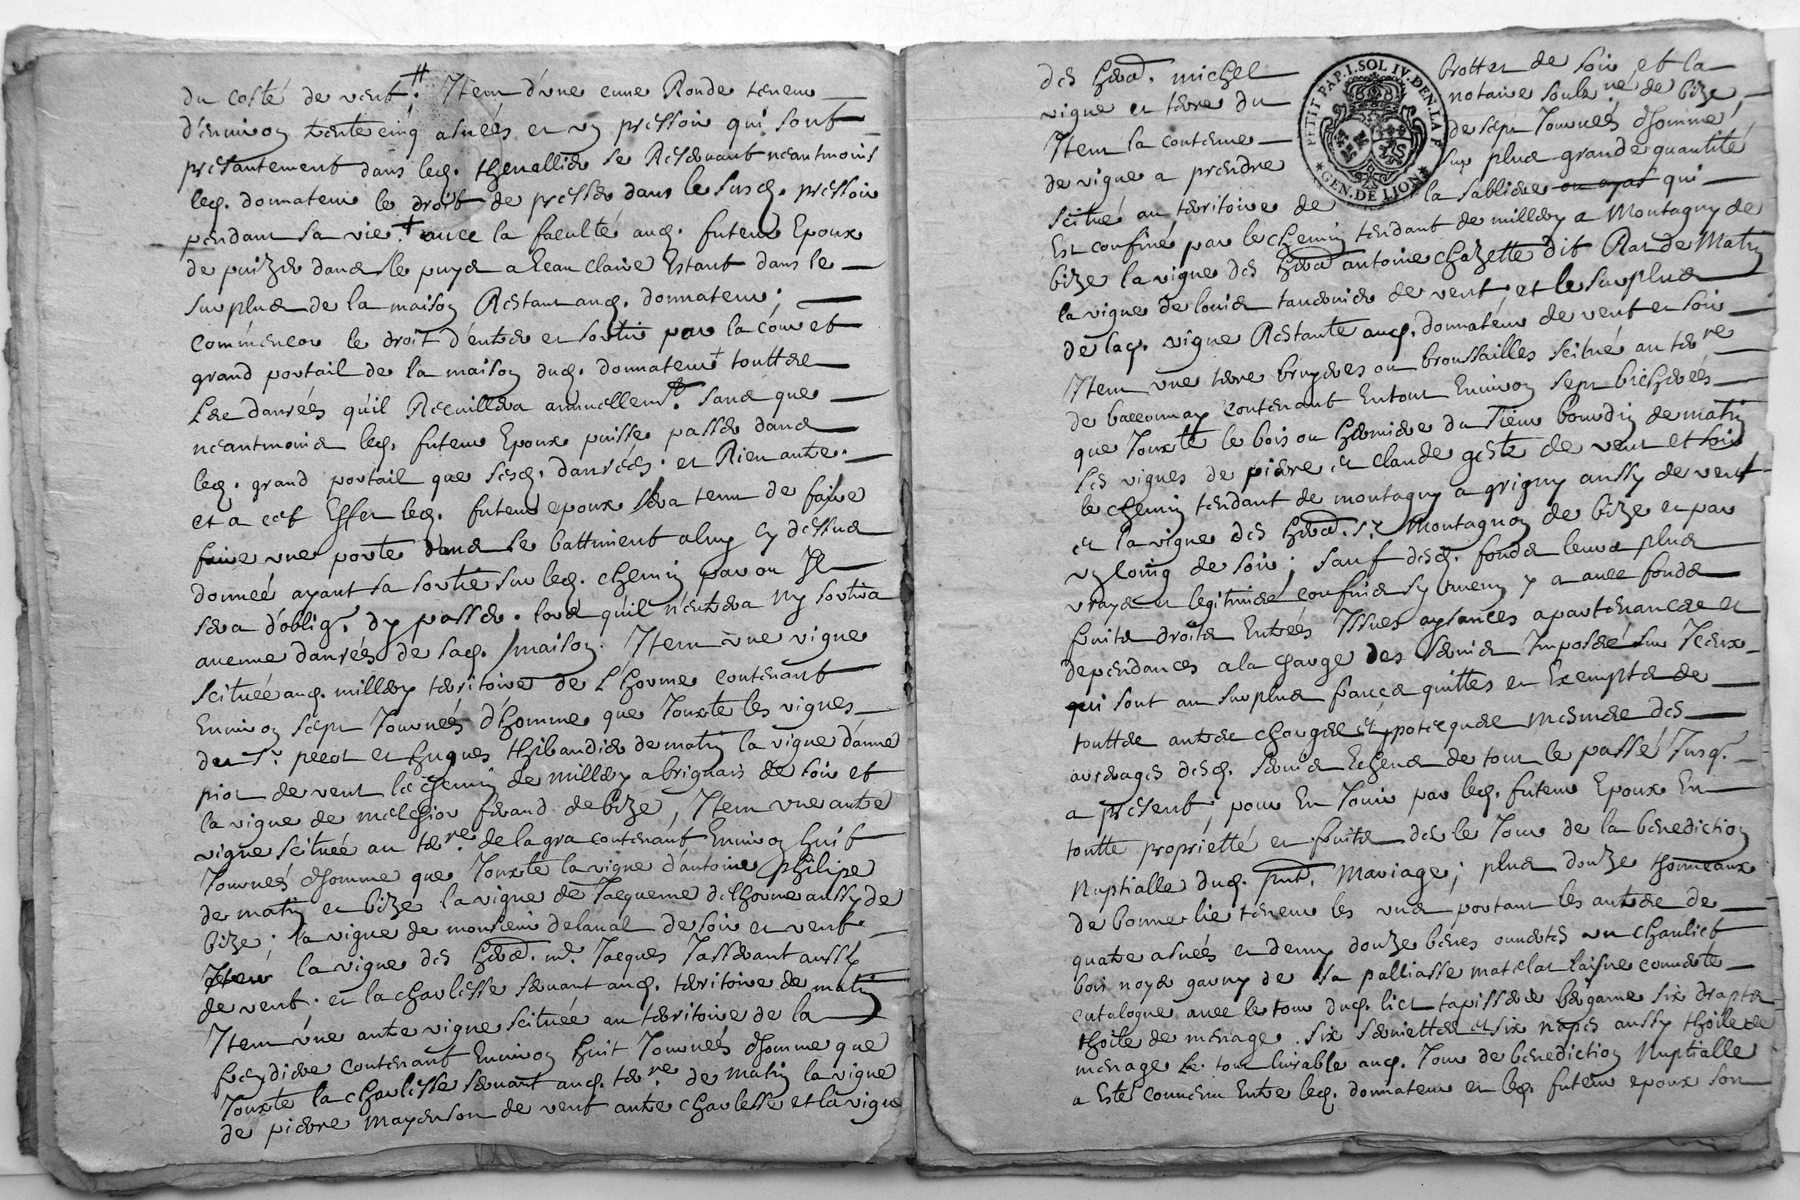 du costé de vent; Item d'une cuue Ronde teneur
d'enuiron trente cinq asnées et un pressoir qui sont
presantement dans led. thenallier se Reseruant neantmoins
led. donnateur le droit de presser dans le susd. pressoir
pendant sa vie. auec la faculté aud. futeur Epoux
de puizer dans le puys a Eau claire Estant dans le
surplus de la maison Restant aud. donnateur;
comme encor le droit d'entrer et sortir par la cour et
grand portail de la maison dud. donnateur touttes
Les danrées qu'il Recuillera annuellemt. sans que
neantmoins led. futeur Epoux puisse passer dans
led. grand portail que sesd. danrées. et Rien autre.
et a cet Effet led. futeur epoux sera tenu de faire
faire une porte dans le battiment a luy cy dessus
donnée ayant sa sortie sur led. chemin par ou Il
sera d'oblig. d'y passer. lors qu'il n'entrera ny sortira
aucune danrées de lad. maison. Item une vigne
scituée aud. millery territoire de L'horme contenant
Enuiron sept Journées d'homme que Jouxte les vignes
du Sr. pecot et hugues thibaudier de matin la vigne d'anne
piot de vent le chemin de millery a brignais de soir et
la vigne de melchior ferand de bize, Item une autre
vigne scituée au terre. de la gra contenant Enuiron huit
Journées d'homme que Jouxte la vigne d'antoine philipe
de matin et bize la vigne de Jacqueme delhorme aussy de
bize; la vigne de monsieur delaual de soir et vent
Item la vigne des hers. me. Jacques Jasserant aussy
de vent; et la charlesse seruant aud. territoire de matin
Item une autre vigne scituée au territoire de la
feydiere contenant Enuiron huit Journées d'homme que
Jouxte la charlesse seruant aud. terre. de matin la vigne
de pierre mayenson de vent autre charlesse et la vigne
des hers. michel brottet de soir et la
vigne et terre du notaire soubzné. de bize,
Item la contenue de sept Journées d'homme
de vigne a prendre sur plus grande quantité
scitué au territoire de la sabliere qui
Est confiné par le chemin tendant de millery a Montagny de
bize la vigne des hers antoine chazette dit Rat de Matin
la vigne de louis tauernier de vent et le surplus
de lad. vigne Restante aud. donnateur de vent et soir
Item une terre bruyeres ou broussailles scitué au terre
de ballormay contenant Entour Enuiron sept bicherées
que Jouxte le bois ou hermiere du sieur bourdin de matin
Les vignes de pierre et claude geste de vent et soir
le chemin tendant de montagny a grigny aussy de vent
et la vigne des hers. Sr. Montagnon de bize et par
un loing de soir; sauf desd. fonds leurs plus
vrays et legitimes confins sy aucun y a auec fonds
fruits droits Entrées Issues aysances apartenances et
dependances a la charge des seruis Imposés sur Iceux
qui sont au surplus francs quittes et Exempts de
touttes autres charges et ypotecques mesmes des
arrerages desd. seruis Echeus de tout le passé Jusq.
a present, pour En Jouir par led. futeur Epoux En
toutte proprietté et fruits des le Jour de la benediction
Nuptialle dud. prnt. Mariage; plus douze thonneaux
de bonne lie teneur les uns portant les autres de
quatre asnées et demy douze benes ouuertes un chaslict
bois noyer garny de sa palliasse matelat laisne couuerte
catalogne auec le tour dud. lict tapisserie bergame six draps
thoile de menage. six seruiettes et six napes aussy thoile de
menage Le tout liurable aud. Jour de benediction Nuptialle
a Esté conuenu Entre led. donnateur et led. futeur epoux son
PETIT PAP. I. SOL IV. DEN. LA F.
GEN. DE LION